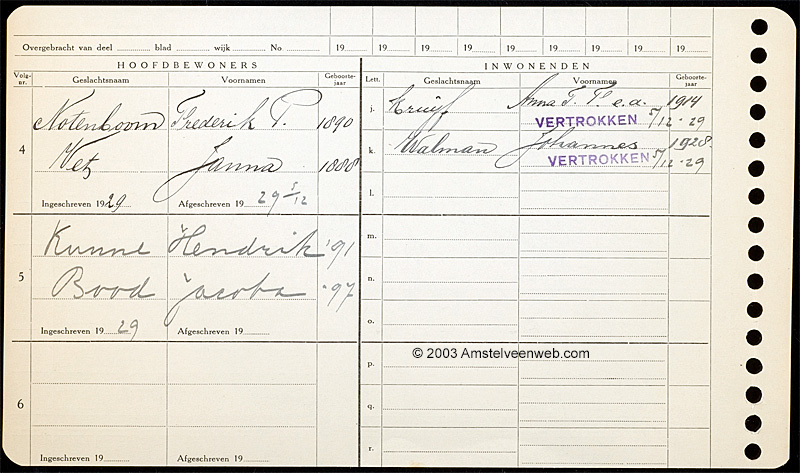 Overgebracht van deel ........ blad ........ wijk ........ No ........ 19.... 19.... 19.... 19.... 19.... 19.... 19.... 19....
HOOFDBEWONERS INWONENDEN
Volg-nr. Geslachtsnaam Voornamen Geboorte-jaar Lett. Geslachtsnaam Voornamen Geboorte-jaar
4 Notenboom Frederik P. 1890
Vet Janna 1888
Ingeschreven 1929 Afgeschreven 29 5/12
5 Kunne Hendrik '91
Bood Jacoba '97
Ingeschreven 19 29 Afgeschreven 19
6
Ingeschreven 19 Afgeschreven 19
j. Kruyf Anna e.a. 1914
VERTROKKEN 5/12-29
k. Walman Johannes 1928
VERTROKKEN 5/12-29
l.
m.
n.
o.
© 2003 Amstelveenweb.com
p.
q.
r.